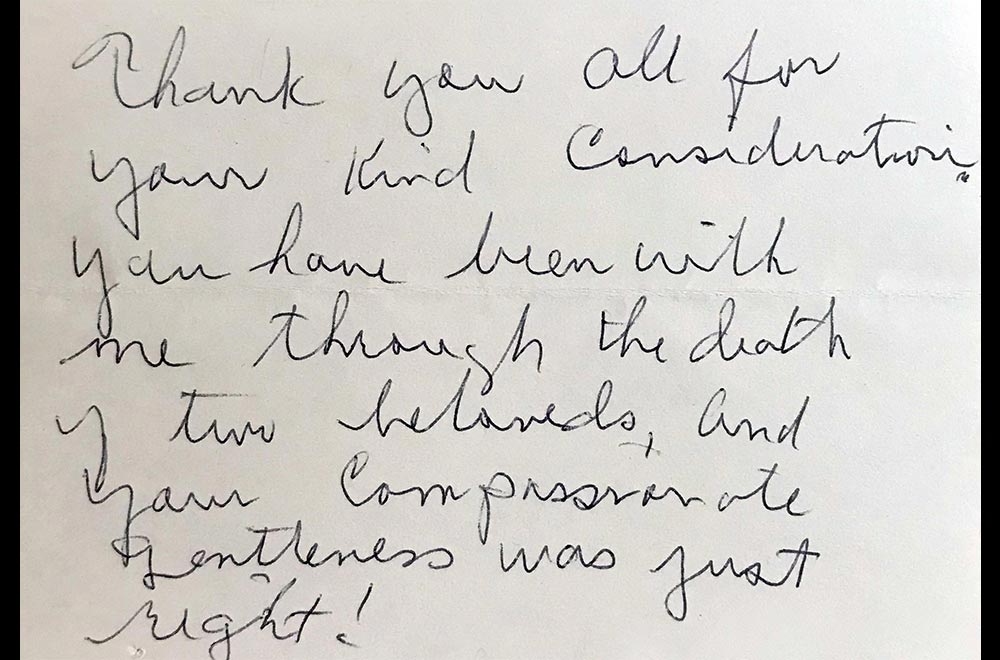 Thank you all for
your Kind Consideration.
you have been with
me through the death
of two beloveds, and
your Compassionate
gentleness was just
right!